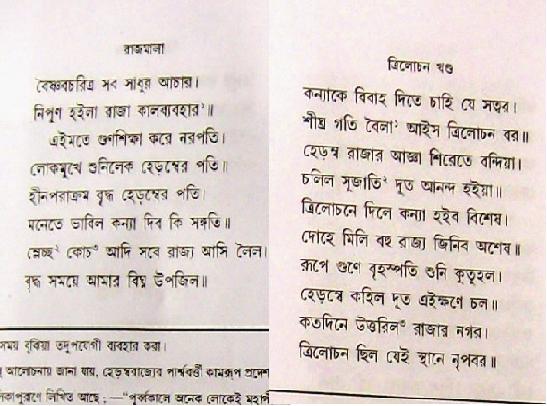 রাজমালা
বৈষ্ণবচরিত্র সব সাধুর আচার।
নিপুণ হইলা রাজা কালব্যবহার॥
এইমতে গুণশিক্ষা করে নরপতি।
লোকমুখে শুনিলেক হেড়ম্বের পতি॥
হীনপরাক্রম বৃদ্ধ হেড়ম্বের পতি।
মনেতে ভাবিল কন্যা দিব কি সঙ্গতি॥
ম্লেচ্ছ কোচ আদি সবে রাজ্য আসি লৈল।
বৃদ্ধ সময়ে আমার বিঘ্ন উপজিল॥
সময় বুঝিয়া তদুপযোগী ব্যবহার করা।
আলোচনায় জানা যায়, হেড়ম্বরাজ্যের পার্শ্ববর্ত্তী কামরূপ প্রদেশ
লিখিত আছে ; —“পূর্ব্বকালে অনেক লোকেই
ত্রিলোচন খণ্ড
কন্যাকে বিবাহ দিতে চাহি যে সত্বর।
শীঘ্র গতি বৈলা আইস ত্রিলোচন বর॥
হেড়ম্ব রাজার আজ্ঞা শিরেতে বন্দিয়া।
চলিল সুজাতি দূত আনন্দ হইয়া॥
ত্রিলোচনে দিলে কন্যা হইব বিশেষ।
দোহে মিলি বহু রাজ্য জিনিব অশেষ॥
রূপে গুণে বৃহস্পতি শুনি কুতূহল।
হেড়ম্বে কহিল দূত এইক্ষণে চল॥
কতদিনে উত্তরিল রাজার নগর।
ত্রিলোচন ছিল যেই স্থানে নৃপবর॥